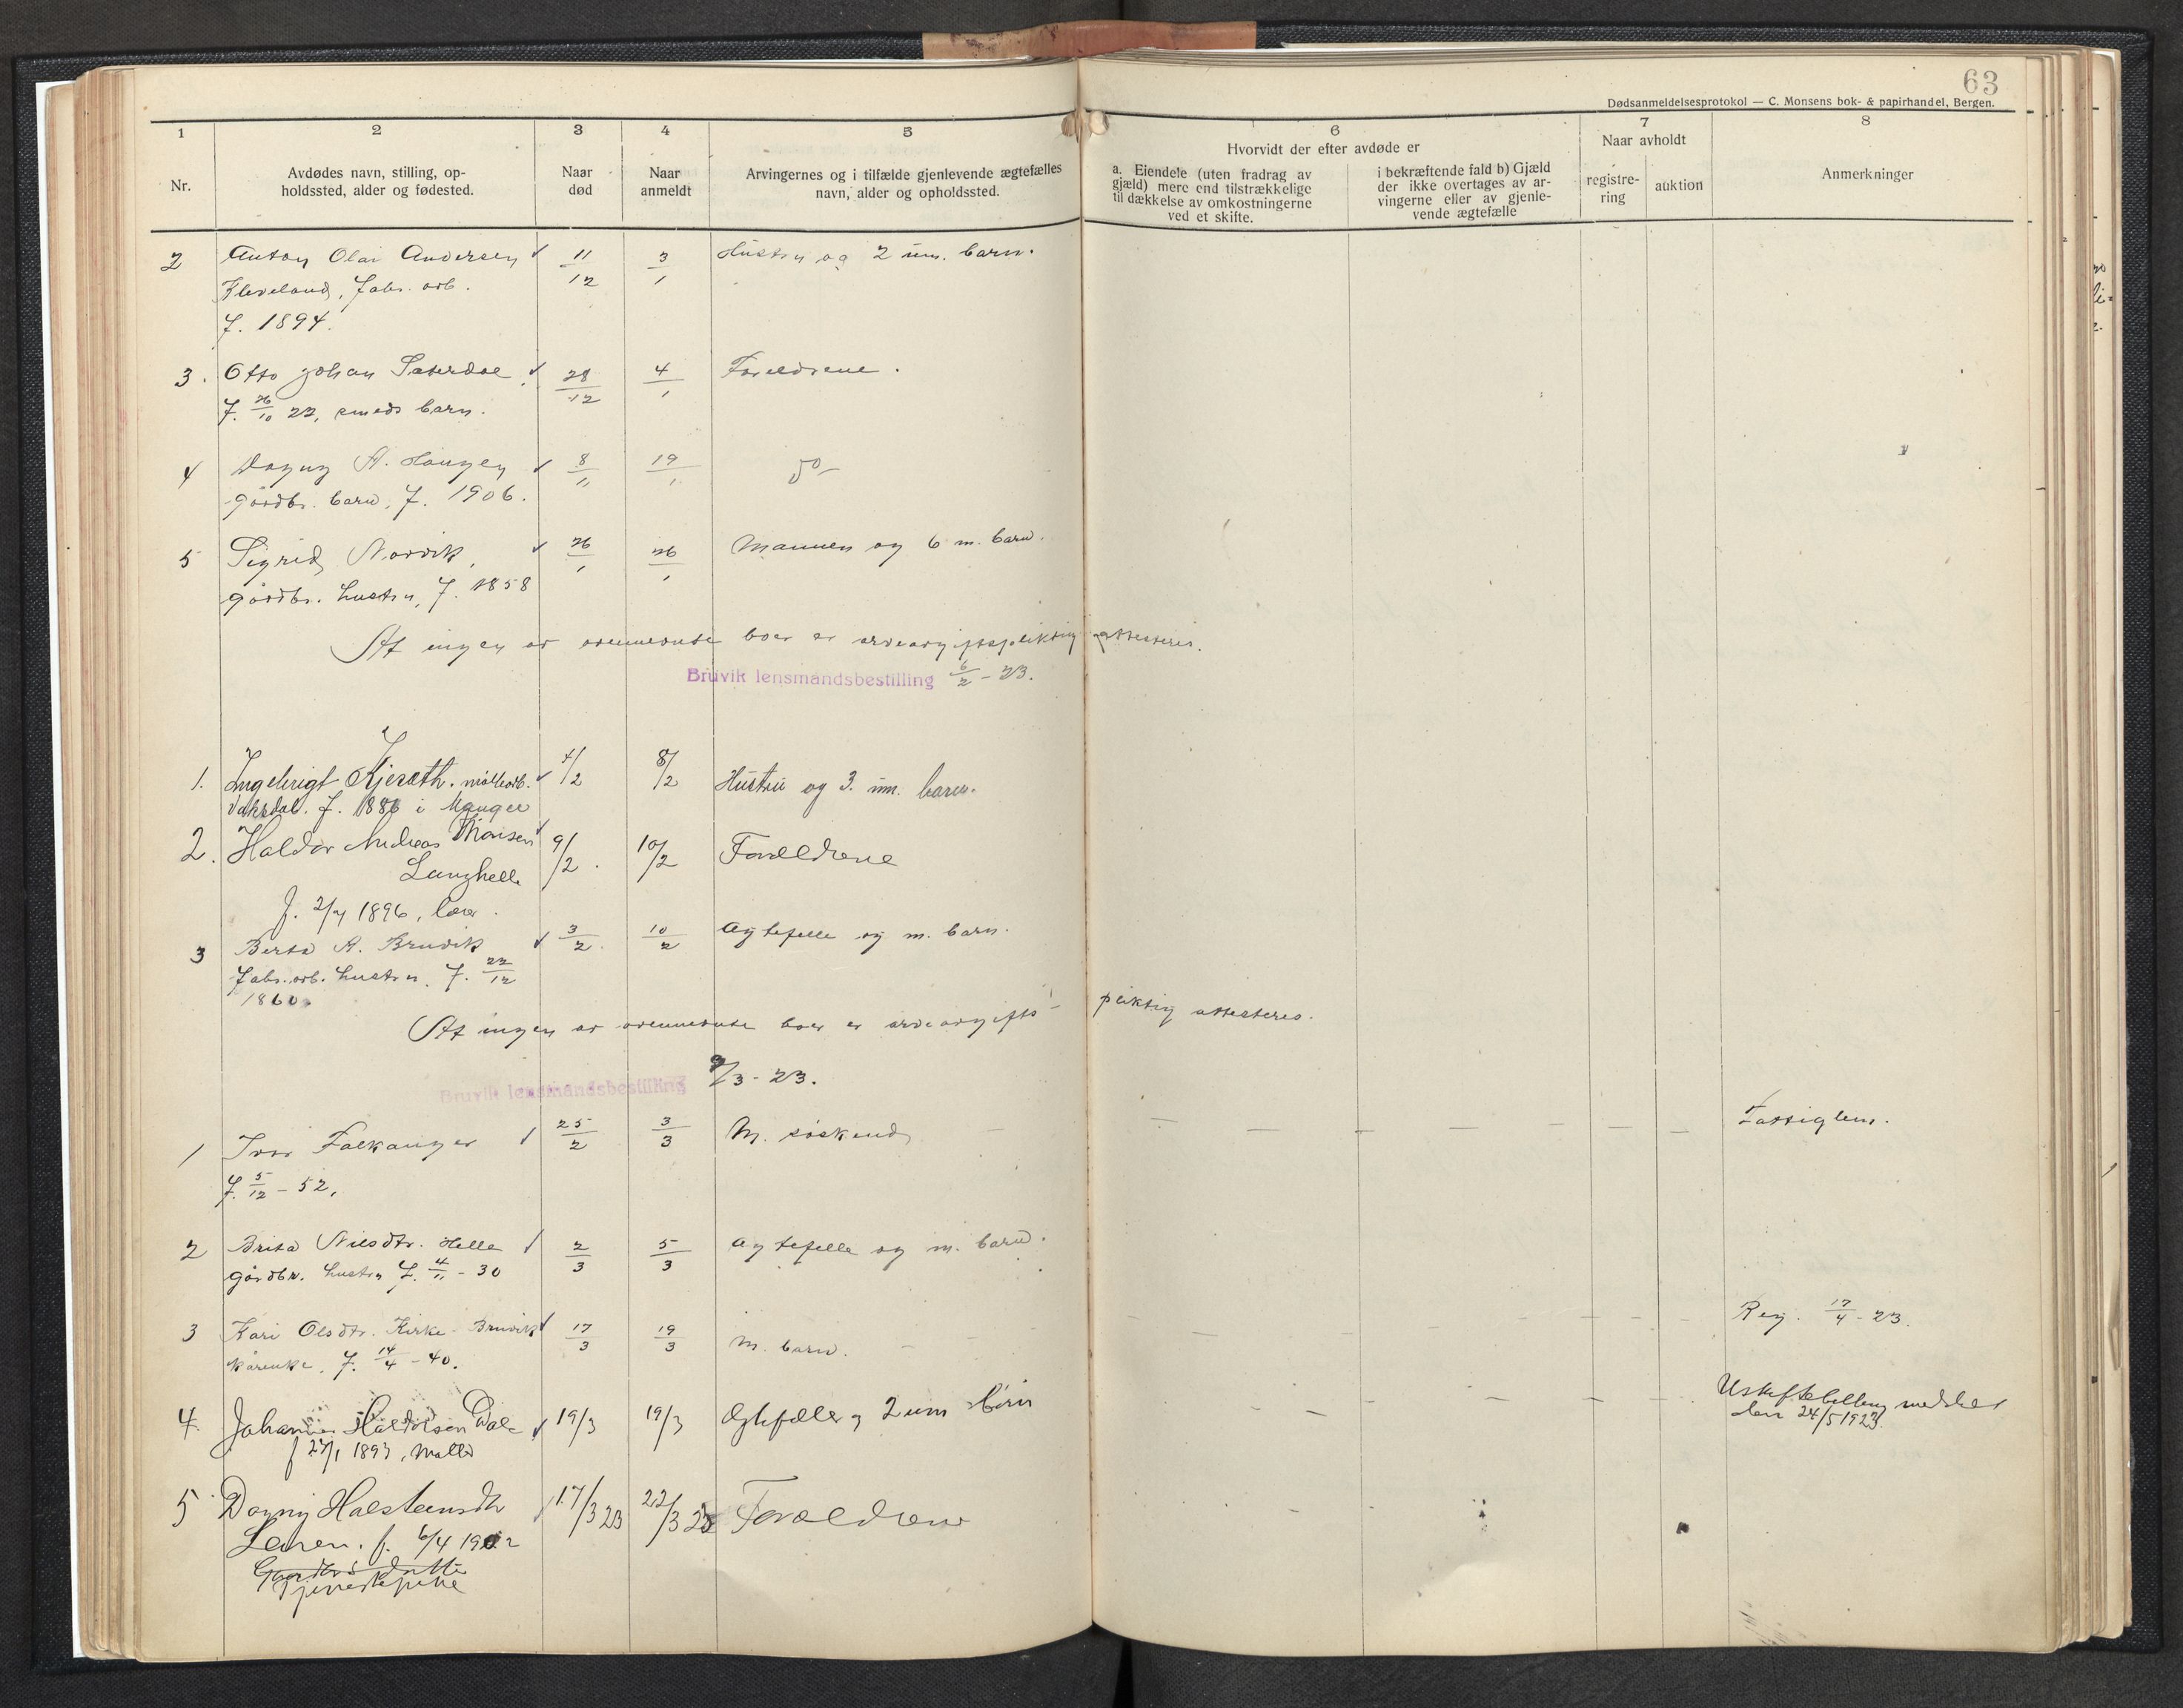 63
Dødsanmeldelsesprotokol — C. Monsens bok- & papirhandel, Bergen.
1 2 3 4 5 6 7 8
Nr.
Avdødes navn, stilling, op-
holdssted, alder og fødested.
Naar
død
Naar
anmeldt
Arvingernes og i tilfælde gjenlevende ægtefælles
navn, alder og opholdssted.
Hvorvidt der efter avdøde er
a. Eiendele (uten fradrag av
gjæld) mere end tilstrækkelige
til dækkelse av omkostningerne
ved et skifte.
i bekræftende fald b) Gjæld
der ikke overtages av ar-
vingerne eller av gjenle-
vende ægtefælle
Naar avholdt
registre-
ring
auktion
Anmerkninger
2 Anton Olai Andersen 11/12 3/1 Hustru og 2 um. barn.
Kleveland, fabr. arb.
f. 1894.
3. Otto Johan Sæterdal 28/12 4/1 Foreldrene.
f. 26/10 22, smeds barn.
4 Dagny A. Haugen 8/11 19/1 do
gårdbr. barn, f. 1906.
5 Sigrid Norvik, 26/1 26/1 Mannen og 6 m. barn.
gårdbr. hustru, f. 1858
At ingen av ovennevnte boer er arveavgiftspliktig attesteres.
Bruvik lensmandsbestilling 6/2 - 23.
1. Ingebrigt Kjesæth. møllearb. 4/2 8/2 Hustru og 3. um. barn.
Vaksdal. f. 1886 i Manger
2. Haldor Andreas Monsen 9/2. 10/2 Forældrene
Langhelle
f. 2/7 1896, lærer.
3 Berta A. Bruvik 3/2. 10/2 Agtefelle og m. barn.
fabr. arb. hustru. f. 22/12
1860.
At ingen av ovennevnte boer er arveavgifts- pliktig attesteres.
Bruvik lensmandsbestilling 9/3 - 23.
1 Ivar Falkanger 25/2 3/3 M. søskend — — — — — — Fattiglem.
f. 5/12 - 52.
2 Brita Nilsdtr. Helle 2/3 5/3 Agtefelle og m. barn.
gårdbr. hustru f. 4/11 - 30
3 Kari Olsdtr. Kirke-Bruvik 17/3 19/3 M. barn. — — — — — — Reg. 17/4 - 23.
kårenke. f. 14/4 - 40.
4. Johannes Haldorsen Dale 19/3 19/3 Ægtefælle og 2 um børn — — — — — Uskiftebevilling meddelt
den 24/5 1923.
f 27/1 1893,
5 Dagny Halsteensdtr 17/3 23 22/3 23 Forældrene
f. 6/4 1902
Gaardbr's datter
Tjenestepike